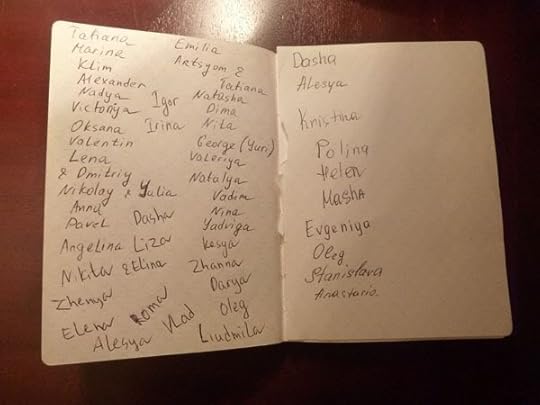 Tatiana
Marina
Klim
Alexander
Nadya
Victoriya Igor
Oksana Irina
Valentin
Lena
& Dmitriy
Nikolay & Yulia
Anna
Pavel Dasha
Angelina Liza
Nikita & Elina
Zhenya
Elena Roma
Alesya Vlad
Emilia
Artsyom &
Tatiana
Natasha
Dima
Nita
George (Yuri)
Valeriya
Natalya
Vadim
Nina
Yadviga
Kesya
Zhanna
Darya
Oleg
Liudmila
Dasha
Alesya
Kristina
Polina
Helen
Masha
Evgeniya
Oleg
Stanislava